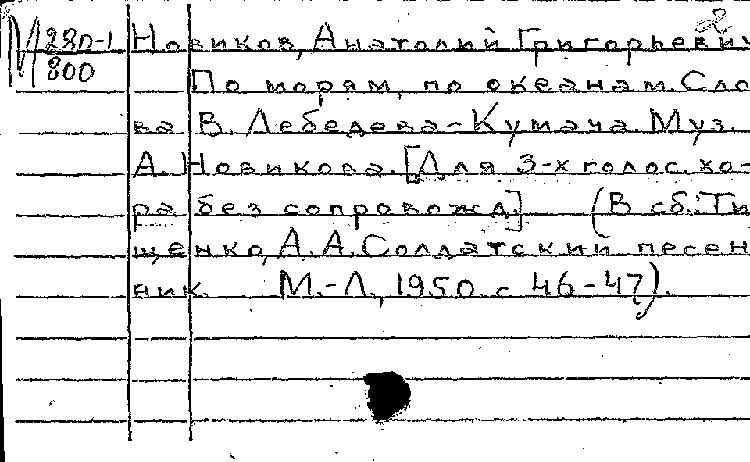 2
М 280-1 Новиков, Анатолий Григорьевич
800 По морям, по океанам. Сло-
ва В. Лебедева-Кумача. Муз.
А. Новикова. [Для 3-х голос. хо-
ра без сопровожд.] (В сб.: Ти-
щенко, А. А. Солдатский песен-
ник. М.-Л., 1950. с 46-47).